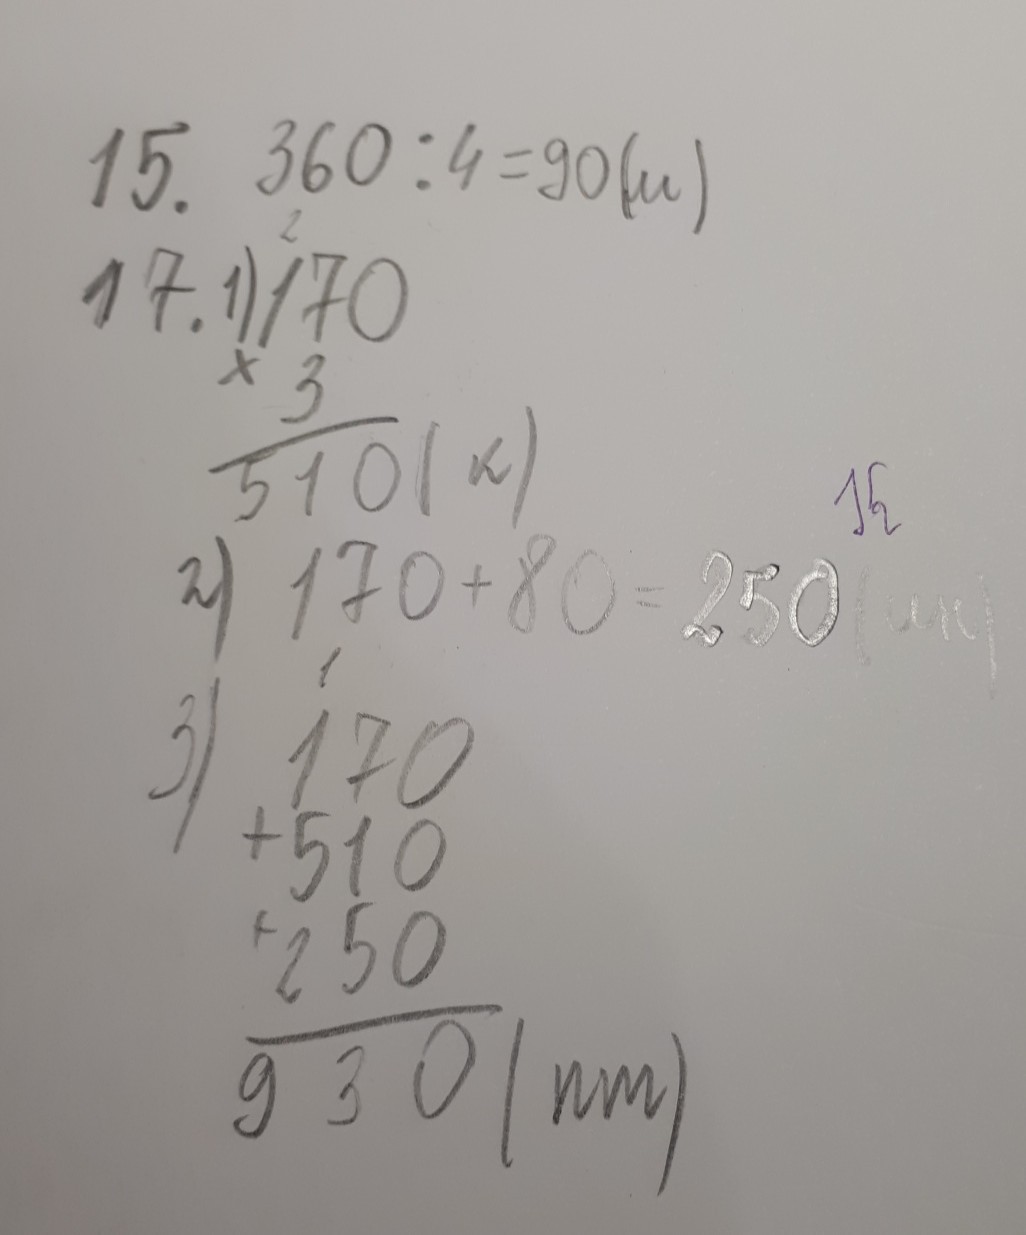 15. 360 : 4 = 90 (и)
2
17. 1) 170
× 3
510 (к)
2) 170 + 80 = 250
1
3) 170
+ 510
+ 250
930 (пт)